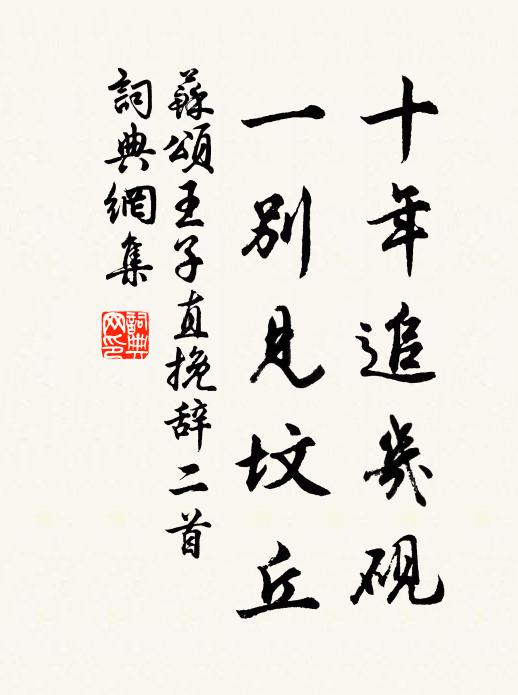 十年追几砚
一别见坟丘
蘇頌王子直挽辞二首
詞典網集
詞典
网印